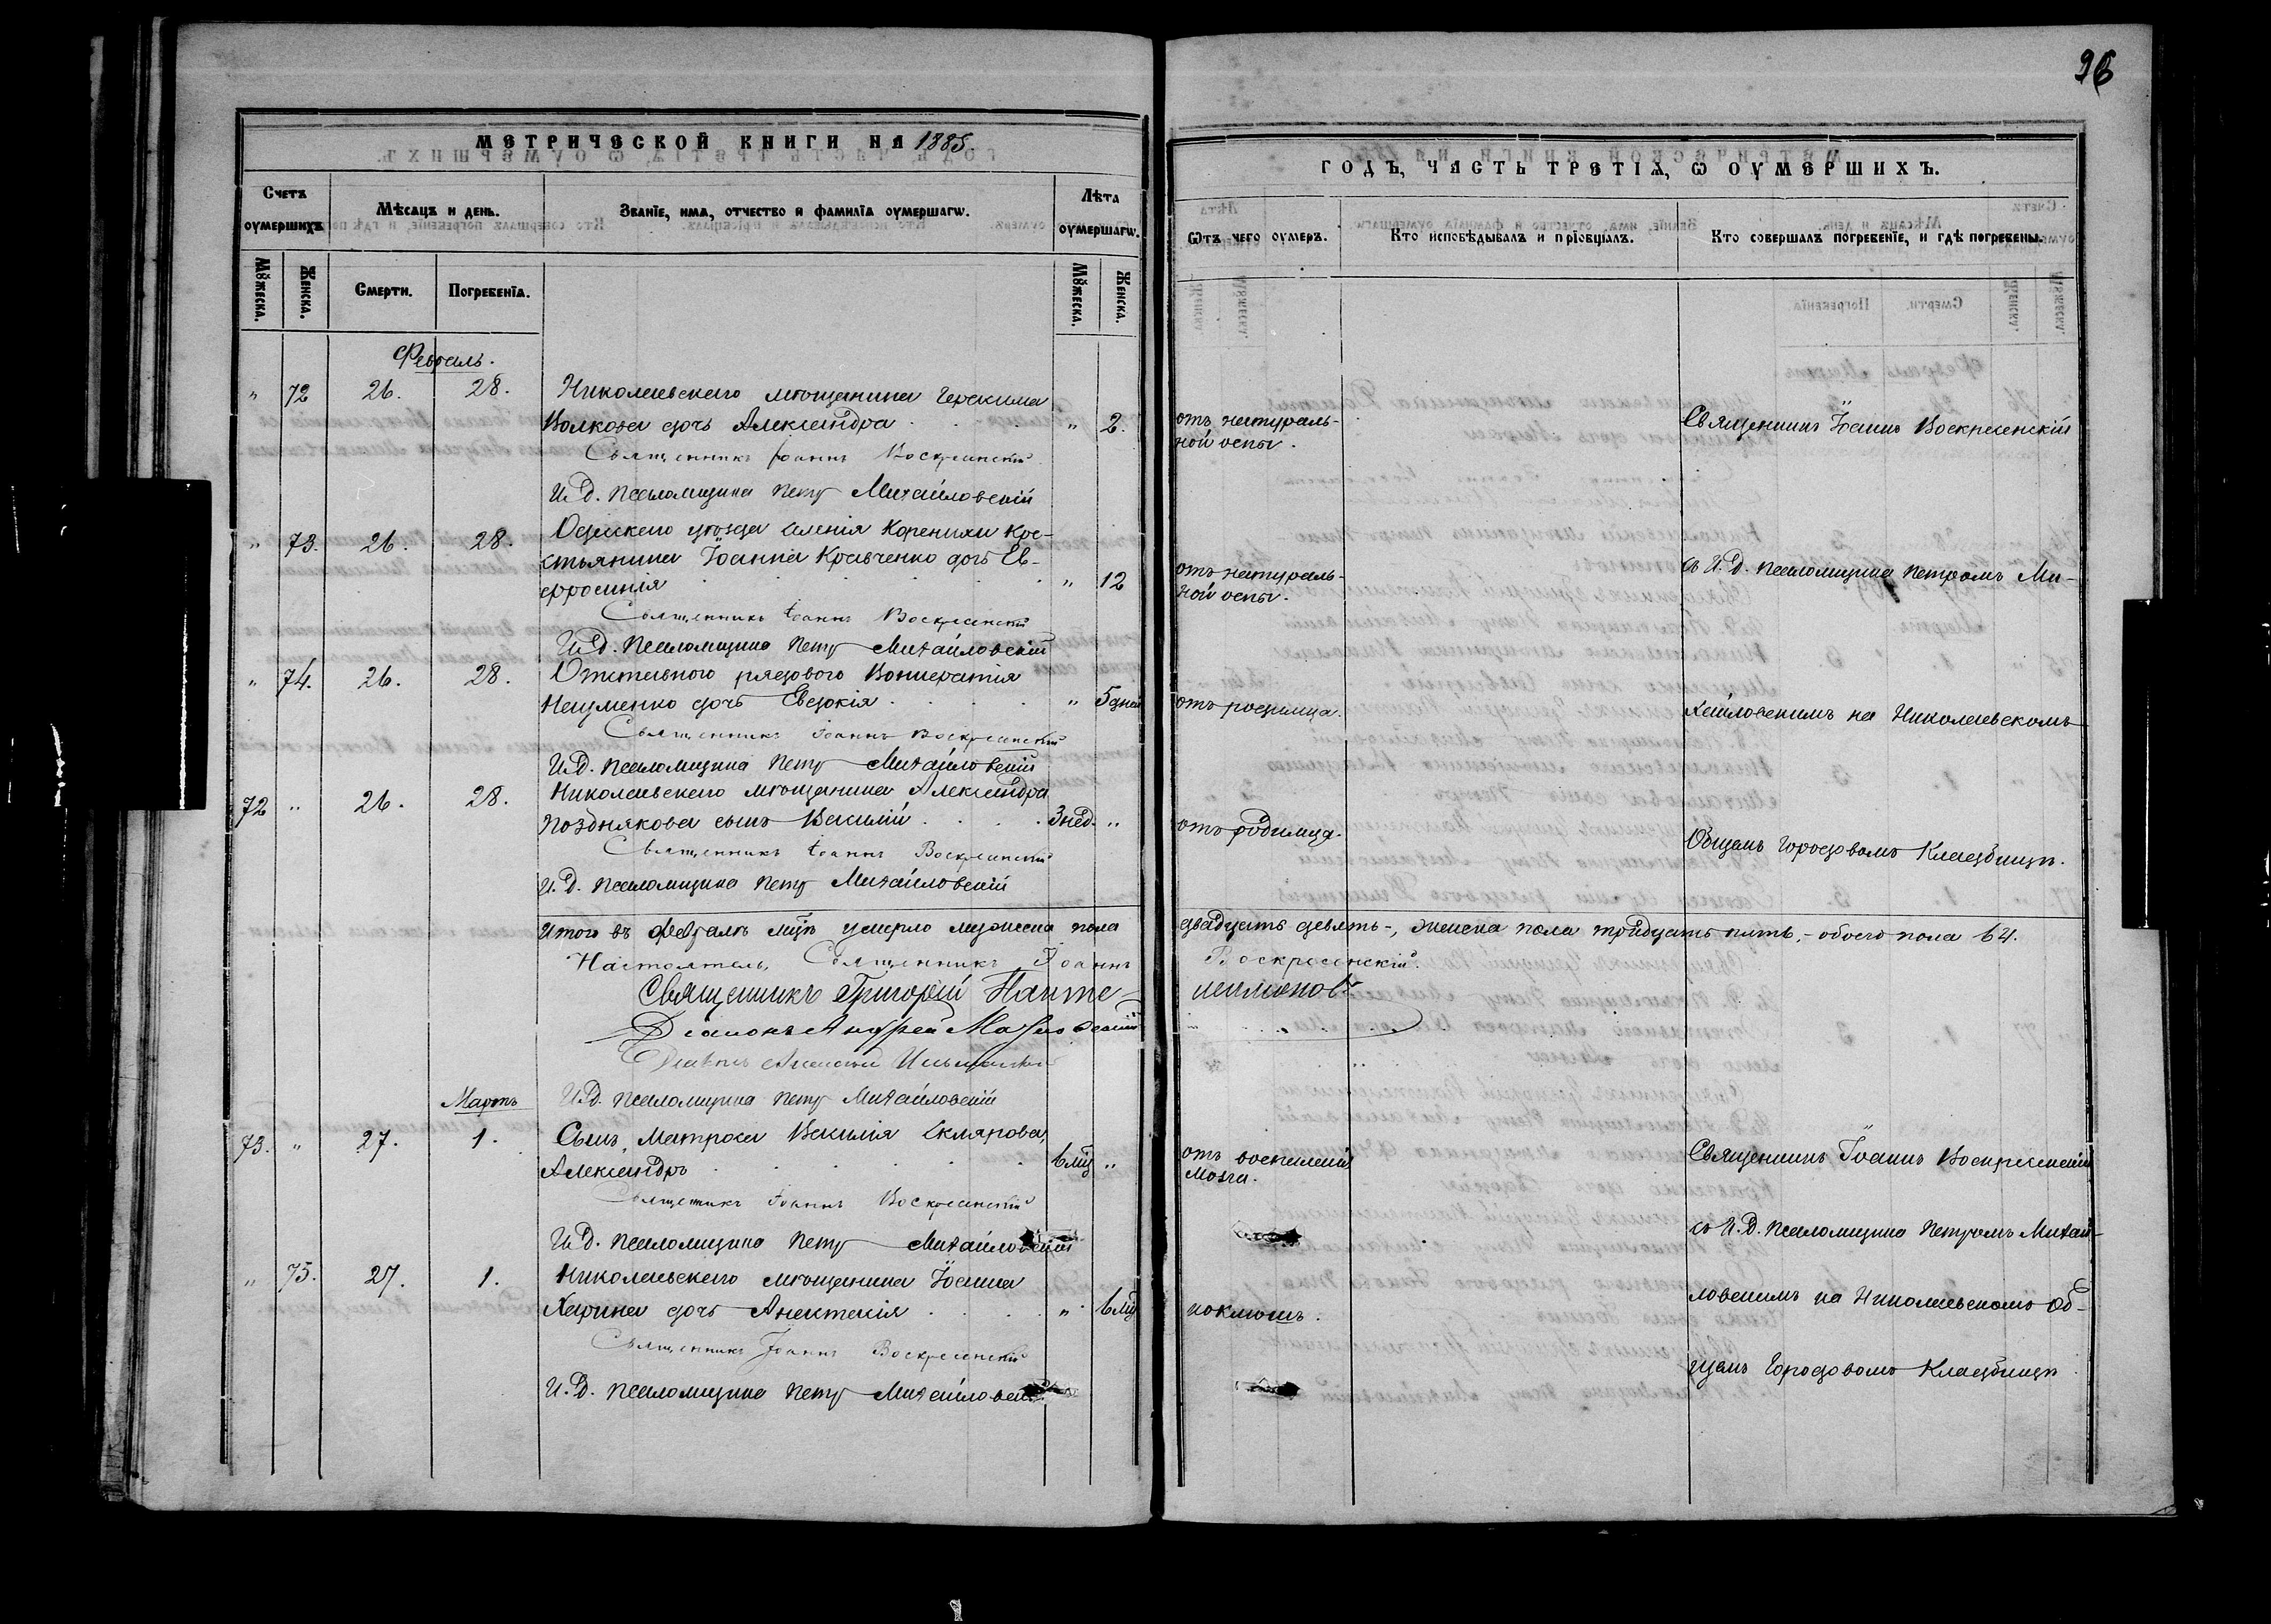 96
МЕТРИЧЕСКОЙ КНИГИ НА 1885.
Счетъ оумершихъ.
Мѣсяцъ и день.
Званїе, имя, отчество и фамилїя оумершагѡ.
Лѣта оумершагѡ.
Мꙋжеска.
Женска.
Смерти.
Погребенїя.
Мꙋжеска.
Женска.
Февраль.
" 72 26. 28. Николаевскаго мѣщанина Герасима
Волкова дочь Александра . . . " 2.
Священникъ Іоаннъ Воскресенскій
И.Д. Псаломщика Петръ Михайловскій
" 73. 26. 28. Одесскаго уѣзда селенія Коренихи Кре-
стьянина Іоанна Кравченко дочь Ев-
фросинія . . . . . . " 12
Священникъ Іоаннъ Воскресенскій
И.Д. Псаломщика Петръ Михайловскій
" 74. 26. 28. Отставного рядового
Науменко дочь Евдокія . . . . " 5 дней
Священникъ Іоаннъ Воскресенскій
И.Д. Псаломщика Петръ Михайловскій
72 " 26. 28. Николаевскаго мѣщанина Александра
Позднякова сынъ Василій . . . . 3 нед. "
Священникъ Іоаннъ Воскресенскій
И.Д. Псаломщика Петръ Михайловскій
Итого въ Февралѣ мцѣ умерло мужеска пола
Настоятель, Священникъ Іоаннъ
Священникъ Григорій Панте-
Діаконъ Андрей
Март
И.Д. Псаломщика Петръ Михайловскій
73. " 27. 1. Сынъ Матроса Василія Склярова,
Александръ . . . . . . 6 мц "
Священникъ Іоаннъ Воскресенскій
И.Д. Псаломщика Петръ Михайловскій
" 75. 27. 1. Николаевскаго мѣщанина Іоанна
Харина дочь Анастасія . . . . " 6 мц
Священникъ Іоаннъ Воскресенскій
И.Д. Псаломщика Петръ Михайловскій
ГОДЪ, ЧАСТЬ ТРЕТІѦ, Ѡ ОУМЕРШИХЪ.
Ѿтъ чего оумеръ.
Кто исповѣдывалъ и прїобщалъ.
Кто совершалъ погребенїе, и гдѣ погребены.
отъ натураль-
ной оспы.
Священникъ Іоаннъ Воскресенскій
отъ натураль-
ной оспы.
съ И.Д. Псаломщика Петромъ Ми-
отъ родимца.
хайловскимъ на Николаевскомъ
отъ родимца.
Общемъ Городовомъ Кладбищѣ.
двадцать девять-, женска пола тридцать пять,- обоего пола 64.
Воскресенскій.
леимоновъ
отъ воспаленія
мозга.
Священникъ Іоаннъ Воскресенскій
съ И.Д. Псаломщика Петромъ Михай-
коклюшъ.
ловскимъ на Николаевскомъ Об-
щемъ Городовомъ Кладбищѣ